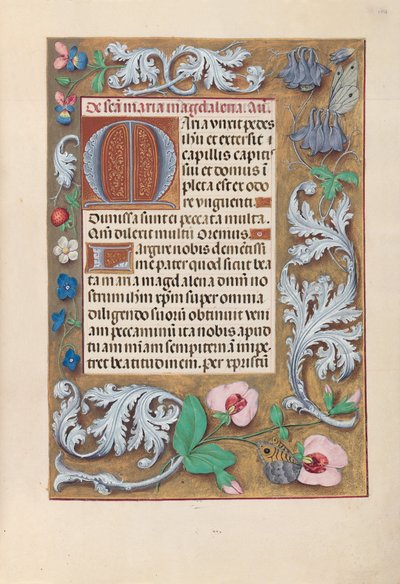 De scā maria magdalena. Añ.
Maria unxit pedes
ihū et extersit
capillis capitis
sui et domus ī
pleta est ex odo
re unguenti.
Dimissa sunt ei peccata multa.
Qm̄ dilexit multū Oremus.
Largire nobis clementissi
me pater quod sicut bea
ta maria magdalena dnm̄ no
strum ihm̄ xpm̄ super omnia
diligendo suorū obtinuit veni
am peccaminū ita nobis apud
tuam misericordiam sempiternā impe
tret beatitudinem. Per xpristū